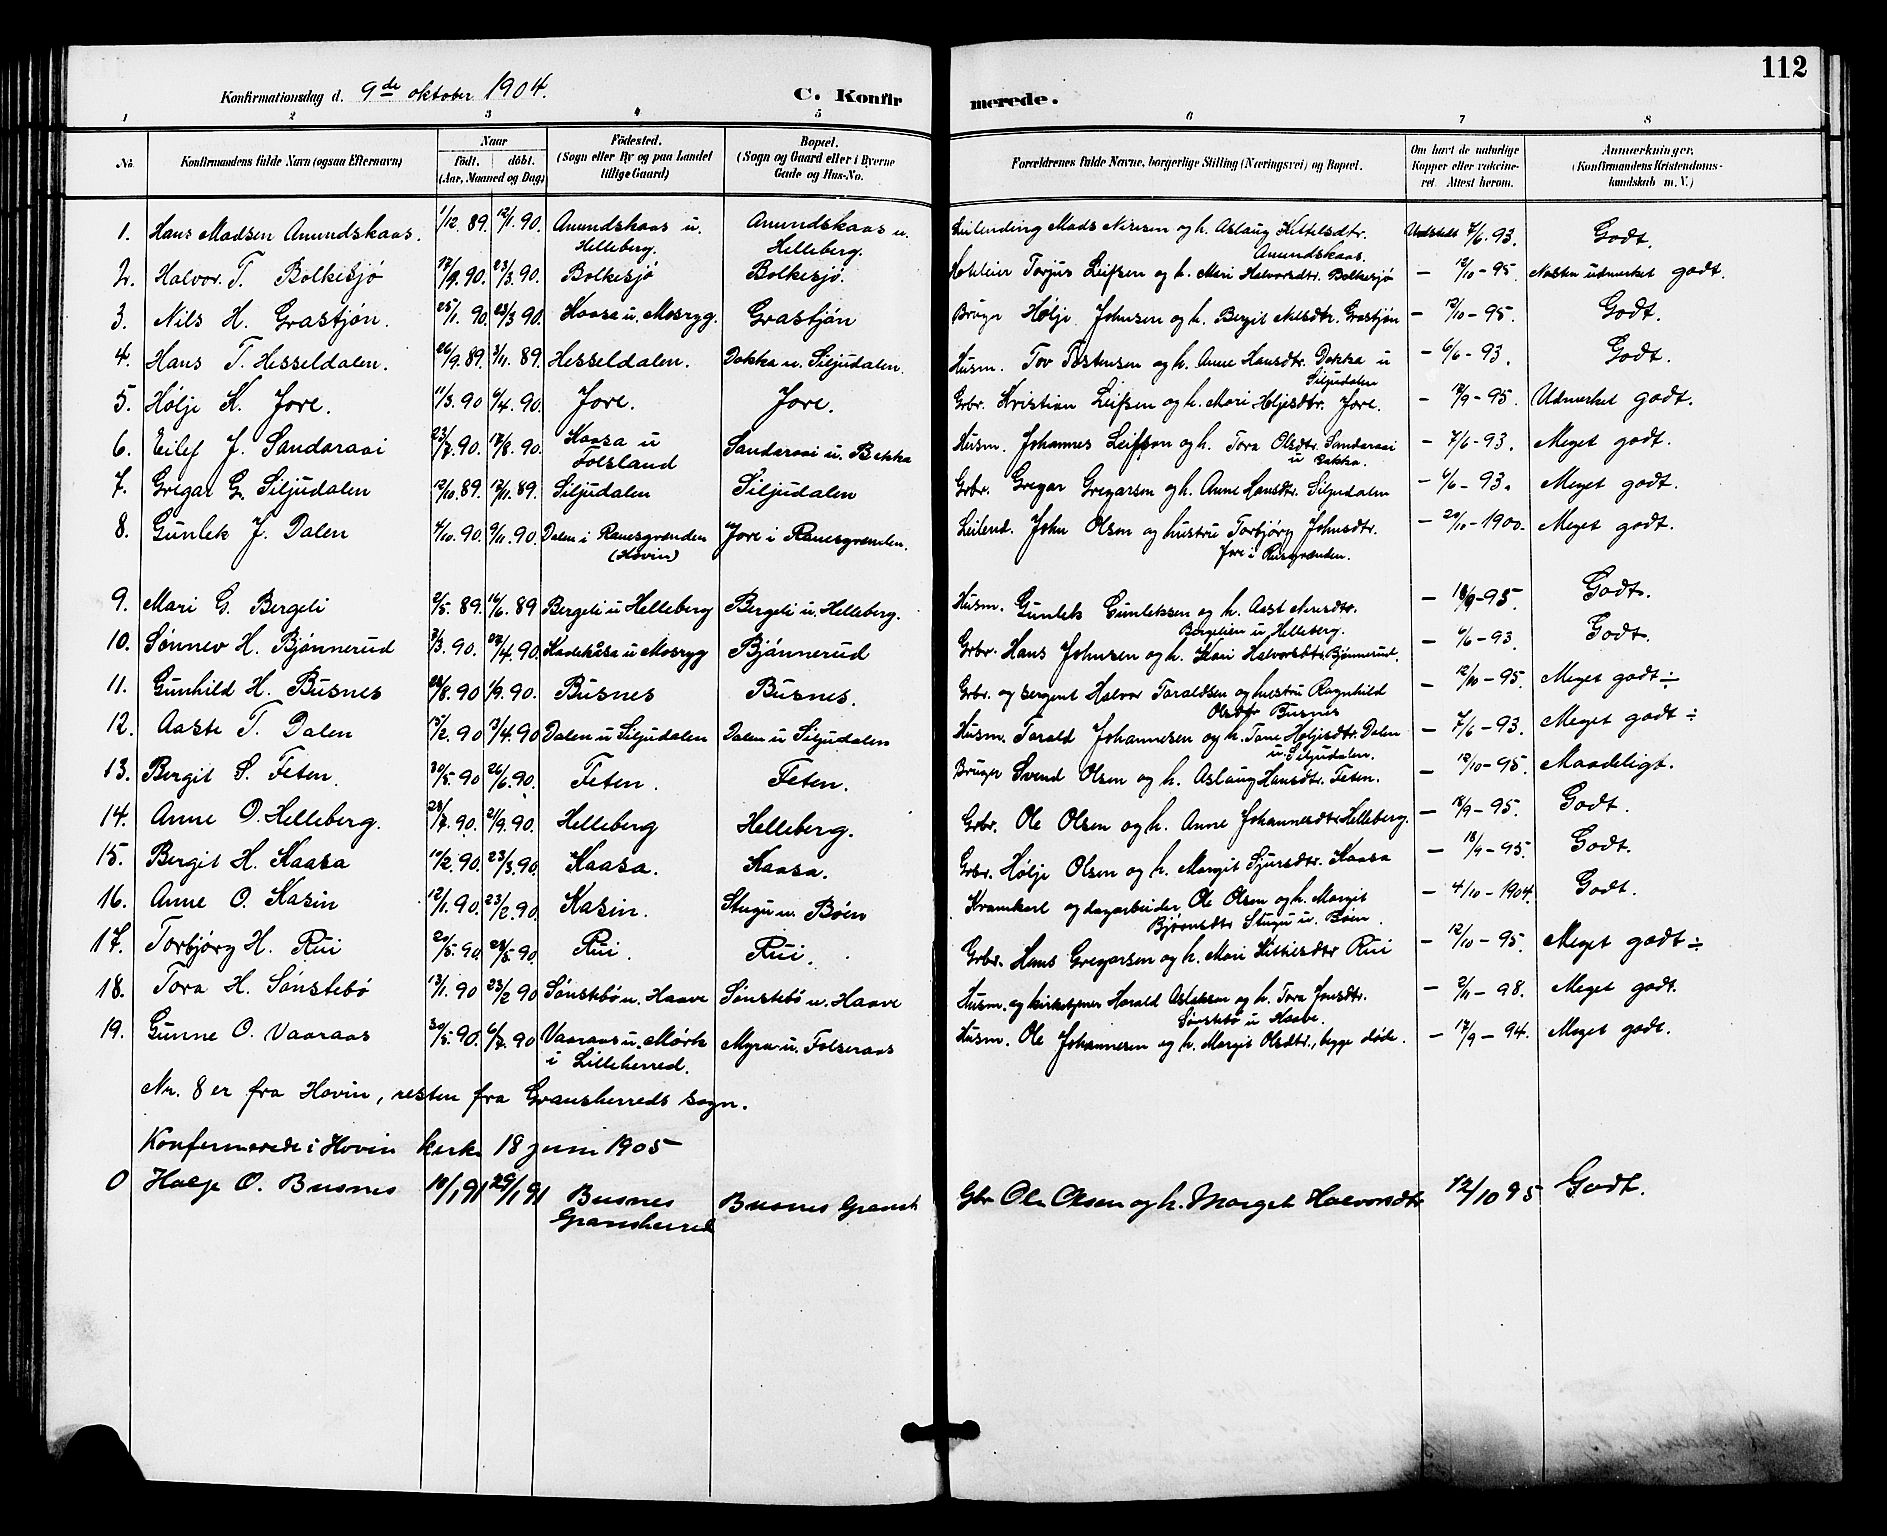 112
Konfirmationsdag d. 9de oktober 1904. C. Konfirmerede.
1 2 3 4 5 6 7 8
No. Konfirmandens fulde Navn (ogsaa Efternavn) Naar födt. döbt. (Aar, Maaned og Dag) Födested. (Sogn eller By og paa Landet tillige Gaard) Bopæl. (Sogn og Gaard eller i Byerne Gade og Hus-No. Forældrenes fulde Navne, borgerlige Stilling (Næringsvei) og Bopæl. Om havt de naturlige Kopper eller vakcineret. Attest herom. Anmærkninger. (Konfirmandens Kristendomskundskab m. V.)
1. Hans Madsen Amundskaas. 1/12 89. 12/1 90. Amundskaas u. Helleberg. Amundskaas u. Helleberg. Leilending Mads Nirisen og h. Aslaug Kittelsdtr. Amundskaas. Udstedt 7/6 93. Godt.
2. Halvor T. Bolkesjø 17/9 90. 23/3 90. Bolkesjø Bolkesjø. Torjus Leifsen og h. Mari Halvorsdtr. Bolkesjø - 12/10 - 95. Næsten udmerket godt.
3. Nils H. Grastjøn. 25/1 90. 23/3 90. Kaasa u. Mosryg. Grastjøn Bruger Hølje Johnsen og h. Bergit Nilsdtr. Grastjøn - 12/10 - 95. Godt.
4. Hans T. Hesseldalen. 26/9 89. 3/11 89. Hesseldalen. Dokka u. Siljudalen. Husm. Tov Tostensen og h. Anne Hansdtr. Dokka u Siljudalen - 6/6 - 93. Godt.
5. Hølje K. Jore. 11/3 90 6/4 90. Jore. Jore. Grbr. Kristian Leifsen og h. Mari Høljesdtr. Jore. - 17/9 - 95. Udmerket godt.
6. Eilef J. Sandaraai 23/7 90. 17/8 90. Kaasa u Folsland Sandaraai u. Bakka Husm. Johannes Leifson og h. Tora Olsdtr. Sandaraai u Bakka. - 7/6 - 93. Meget godt.
7. Gregar G. Siljudalen 12/10 89. 17/11 89. Siljudalen Siljudalen Grbr. Gregar Gregarsen og h. Anne Hansdtr. Siljudalen - 6/6 - 93. Meget godt.
8. Gunlek J. Dalen 4/10 90. 9/11 90. Dalen i Rauesgrænden (Hovin) Jore i Rauesgrænden. Leilend. John Olsen og hustru Torbjørg Johnsdtr. Jore i Rusgrænden. - 20/10 - 1900. Meget godt.
9. Mari G. Bergeli 2/5 89. 16/6 89 Bergeli u Helleberg Bergeli u. Helleberg. Husm. Gunlek Gunleksen og h. Aast Nirisdtr. Bergelien u Helleberg. - 18/9 - 95. Godt.
10. Sønnev H. Bjønnerud 7/3 90. 27/4 90. Kaasa u Mosryg Bjønnerud Grbr. Hans Johnsen og h. Kari Halvorsdtr. Bjønnerud. - 6/6 - 93. Godt.
11. Gunhild H. Busnes 28/8 90 1/9 90. Busnes Busnes. Grbr. og sergent Halvor Taraldsen og hustru Ragnhild Olsdtr Busnes - 12/10 - 95. Meget godt ÷
12. Aaste T. Dalen 15/2 90 7/4 90 Dalen u Siljudalen Dalen u Siljudalen Husm. Tarald Johannesen og h. Tone Høljesdtr. Dalen u. Siljudalen. - 7/6 - 93. Meget godt ÷
13. Bergit S. Feten. 30/5 90 26/6 90. Feten. Feten. Bruger Svend Olsen og h. Aslaug Hansdtr. Feten. - 12/10 - 95. Maadeligt.
14. Anne O. Helleberg. 28/7 90. 21/9 90. Helleberg Helleberg. Grbr. Ole Olsen og h. Anne Johannesdtr Helleberg. - 18/9 - 95. Godt.
15. Bergit H. Kaasa 10/2 90. 23/3 90. Kaasa. Kaasa. Grbr. Hølje Olsen og h. Margit Sjursdtr. Kaasa - 18/9 - 95. Godt.
16. Anne O. Kasin 12/1 90. 23/2 90. Kasin. Stugu u. Bøen Kramkarl og dagarbeider Ole Olsen og h. Margit Bjørnsdtr Stugu u. Bøen. - 4/10 - 1904. Godt.
17. Torbjørg H. Rui 20/5 90. 28/5 90. Rui. Rui. Grbr. Hans Gregarsen og h. Mari Kittilsdtr Rui - 12/10 - 95. Meget godt ÷
18. Tora H. Sønstebø 13/1 90 23/2 90 Sønstebø u. Haave Sønstebø u. Haave Husm. og kirketjener Harald Aslaksen og h. Tora Jonsdtr. Sønstebø u Haave. - 2/11 - 98. Meget godt.
19. Gunne O. Vaaraas 30/5 90. 6/7 90 Vaaraas u. Mørk i Lilleherred. Myra u. Folseraas Husm. Ole Johannesen og h. Margit Olsdtr., begge døde. - 17/9 - 94. Meget godt.
Nr. 8 er fra Hovin, resten fra Gransherreds sogn.
Konfermerede i Hovin kirke 18 juni 1905
0 Holje O. Busnes 10/1 91 29/1 91 Busnes Gransherred Busnes Gransh Gbr Ole Olsen og h. Marget Halvorsdtr 12/10 95 Godt.